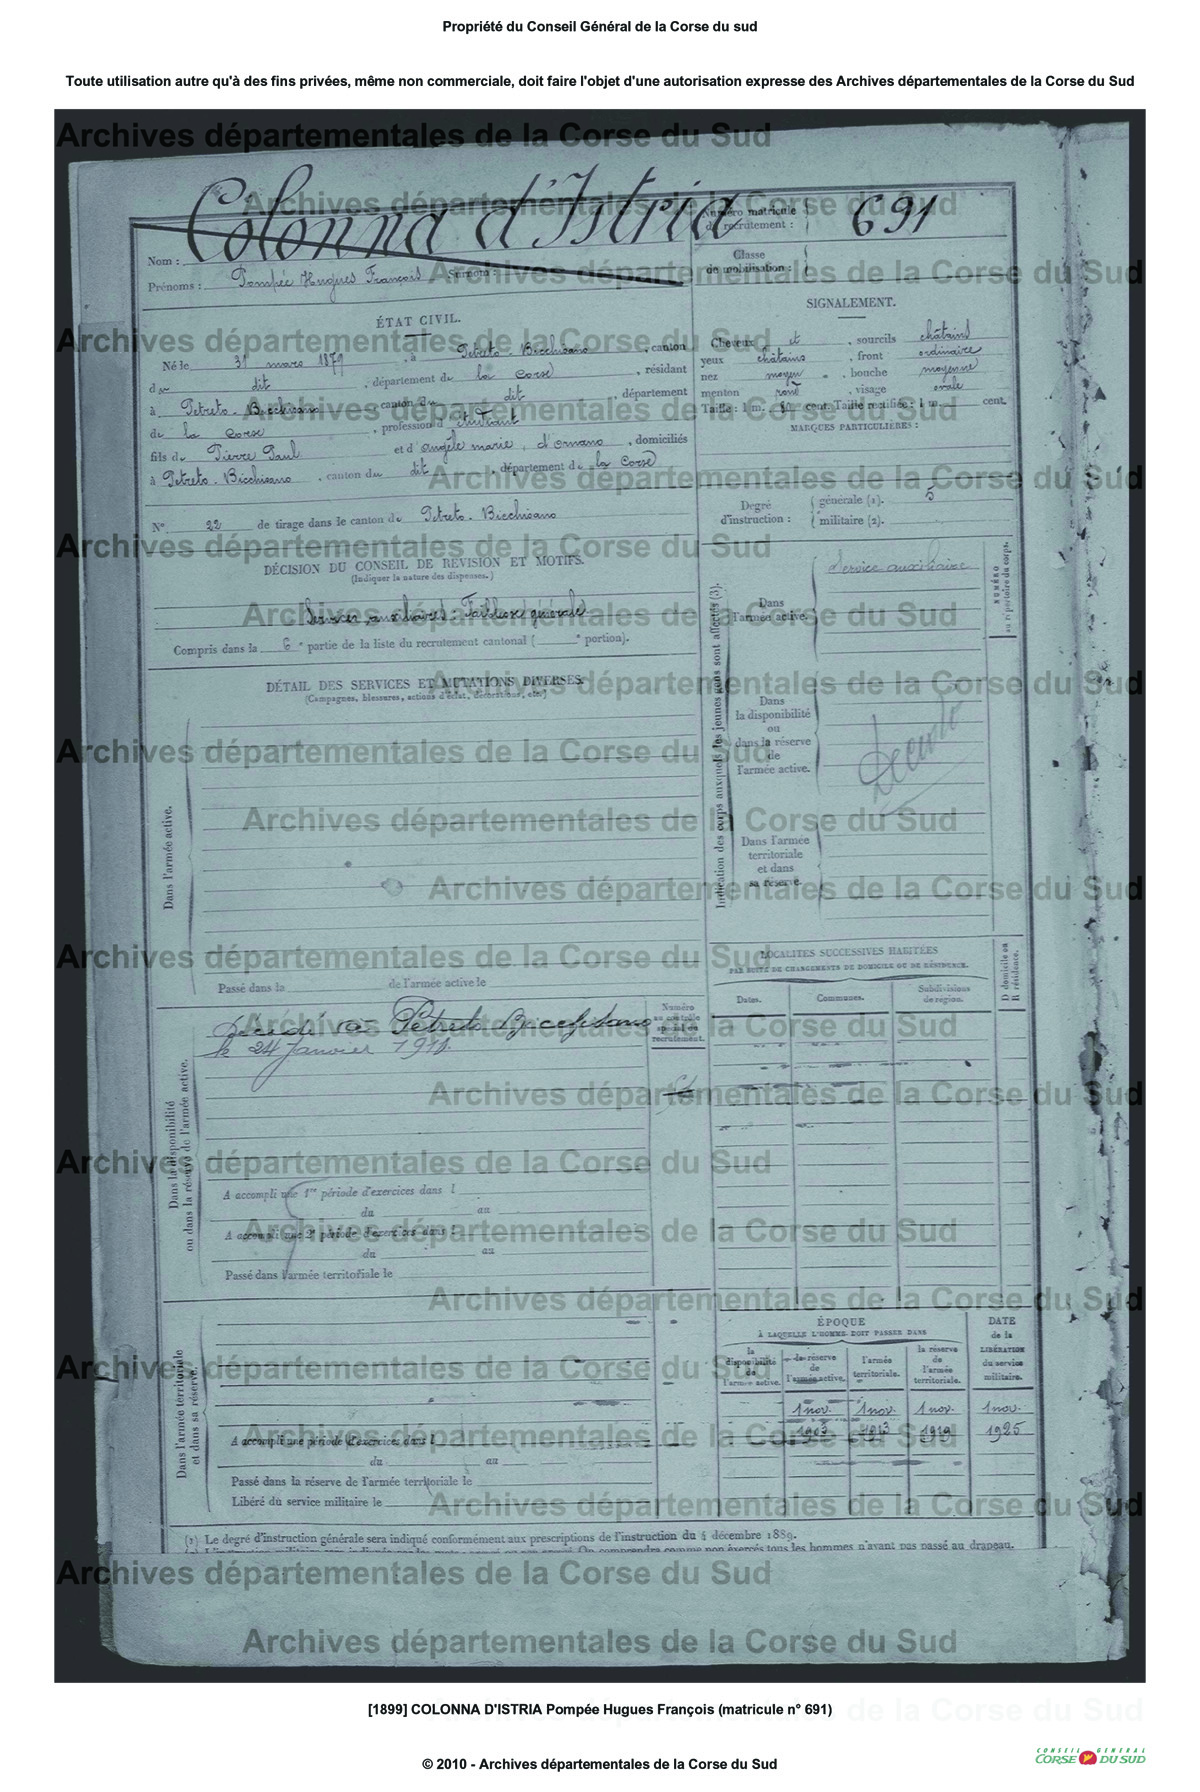 Propriété du Conseil Général de la Corse du sud
Toute utilisation autre qu'à des fins privées, même non commerciale, doit faire l'objet d'une autorisation expresse des Archives départementales de la Corse du Sud
Archives départementales de la Corse du Sud
Nom : Colonna d'Istria
Prénoms : Pompée Hugues François Surnom :
Numéro matricule du recrutement : 691
Classe de mobilisation :
ÉTAT CIVIL.
Né le 31 mars 1879, à Petreto-Bicchisano, canton
du dit, département de la Corse, résidant
à Petreto-Bicchisano, canton du dit, département
de la Corse, profession d'étudiant
fils de Pierre Paul et d'angèle marie, d'Ornano, domiciliés
à Petreto-Bicchisano, canton du dit, département de la Corse
N° 22 de tirage dans le canton de Petreto-Bicchisano
SIGNALEMENT.
Cheveux et, sourcils châtains
yeux châtains, front ordinaire
nez moyen, bouche moyenne
menton rond, visage ovale
Taille : 1 m. cent. Taille rectifiée : 1 m. cent.
MARQUES PARTICULIÈRES :
Degré d'instruction : générale (1). 5
militaire (2).
DÉCISION DU CONSEIL DE RÉVISION ET MOTIFS.
(Indiquer la nature des dispenses.)
Services auxiliaires. Faiblesse générale
Compris dans la 6e partie de la liste du recrutement cantonal ( e portion).
DÉTAIL DES SERVICES ET MUTATIONS DIVERSES.
(Campagnes, blessures, actions d'éclat, décorations, etc.)
Dans l'armée active.
Passé dans la de l'armée active le
Indication des corps auxquels les jeunes gens sont affectés (3).
Dans l'armée active. Service auxiliaire
NUMÉRO au répertoire du corps.
Dans la disponibilité ou dans la réserve de l'armée active.
Dans l'armée territoriale et dans sa réserve.
LOCALITÉS SUCCESSIVES HABITÉES
PAR SUITE DE CHANGEMENTS DE DOMICILE OU DE RÉSIDENCE.
Dates. Communes. Subdivisions de région. D domicile ou R résidence.
Dans la disponibilité ou dans la réserve de l'armée active.
Numéro au contrôle spécial du recrutement.
Décédé à Petreto Bicchisano
le 24 Janvier 1911.
A accompli une 1re période d'exercices dans l
du au
A accompli une 2e période d'exercices dans l
du au
Passé dans l'armée territoriale le
Dans l'armée territoriale et dans sa réserve.
A accompli une période d'exercices dans l
du au
Passé dans la réserve de l'armée territoriale le
Libéré du service militaire le
ÉPOQUE
À LAQUELLE L'HOMME DOIT PASSER DANS
la disponibilité de l'armée active.
la réserve de l'armée active.
l'armée territoriale.
la réserve de l'armée territoriale.
DATE de la LIBÉRATION du service militaire.
1 nov. 1 nov. 1 nov. 1 nov.
1903 1913 1919 1925
(1) Le degré d'instruction générale sera indiqué conformément aux prescriptions de l'instruction du 4 décembre 1889.
[1899] COLONNA D'ISTRIA Pompée Hugues François (matricule n° 691)
© 2010 - Archives départementales de la Corse du Sud
CONSEIL GENERAL
CORSE DU SUD